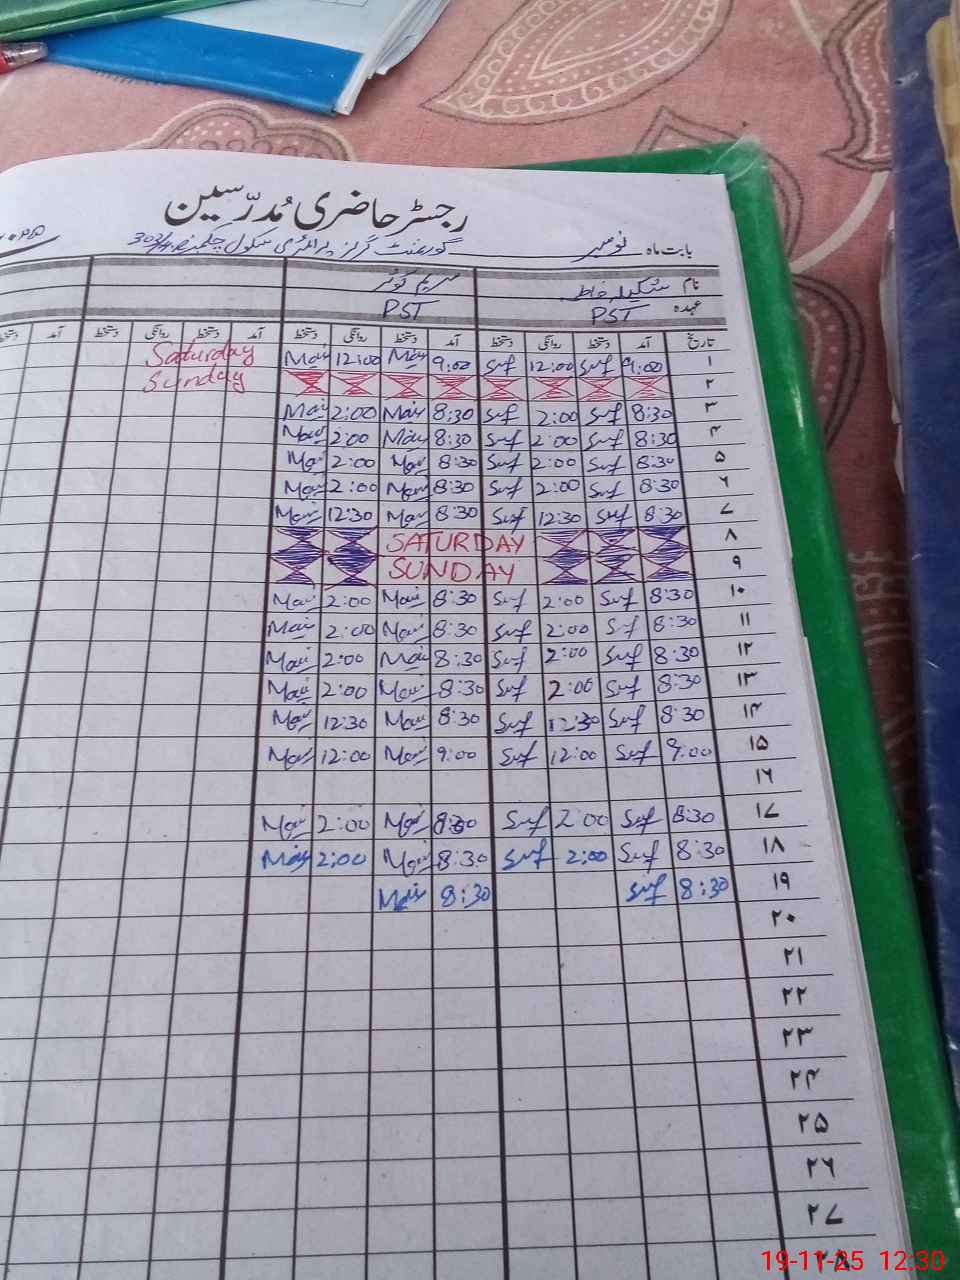 رجسٹر حاضری مُدرّسین
بابت ماہ نومبر گورنمنٹ گرلز پرائمری سکول چکنمبر 303/
نام شکیلہ فاطمہ مریم کوثر
عہدہ PST PST
تاریخ آمد دستخط روانگی دستخط آمد دستخط روانگی دستخط آمد دستخط روانگی دستخط آمد دستخط
۱ 9:00 Suf 12:00 Suf 9:00 Mai 12:00 Mai Saturday
۲ Sunday
۳ 8:30 Suf 2:00 Suf 8:30 Mai 2:00 Mai
۴ 8:30 Suf 2:00 Suf 8:30 Mai 2:00 Mai
۵ 8:30 Suf 2:00 Suf 8:30 Mai 2:00 Mai
۶ 8:30 Suf 2:00 Suf 8:30 Mai 2:00 Mai
۷ 8:30 Suf 12:30 Suf 8:30 Mai 12:30 Mai
۸ SATURDAY
۹ SUNDAY
۱۰ 8:30 Suf 2:00 Suf 8:30 Mai 2:00 Mai
۱۱ 8:30 Suf 2:00 Suf 8:30 Mai 2:00 Mai
۱۲ 8:30 Suf 2:00 Suf 8:30 Mai 2:00 Mai
۱۳ 8:30 Suf 2:00 Suf 8:30 Mai 2:00 Mai
۱۴ 8:30 Suf 12:30 Suf 8:30 Mai 12:30 Mai
۱۵ 9:00 Suf 12:00 Suf 9:00 Mai 12:00 Mai
۱۶
۱۷ 8:30 Suf 2:00 Suf 8:30 Mai 2:00 Mai
۱۸ 8:30 Suf 2:00 Suf 8:30 Mai 2:00 Mai
۱۹ 8:30 Suf 8:30 Mai
۲۰
۲۱
۲۲
۲۳
۲۴
۲۵
۲۶
۲۷
۲۸
19-11-25 12:30